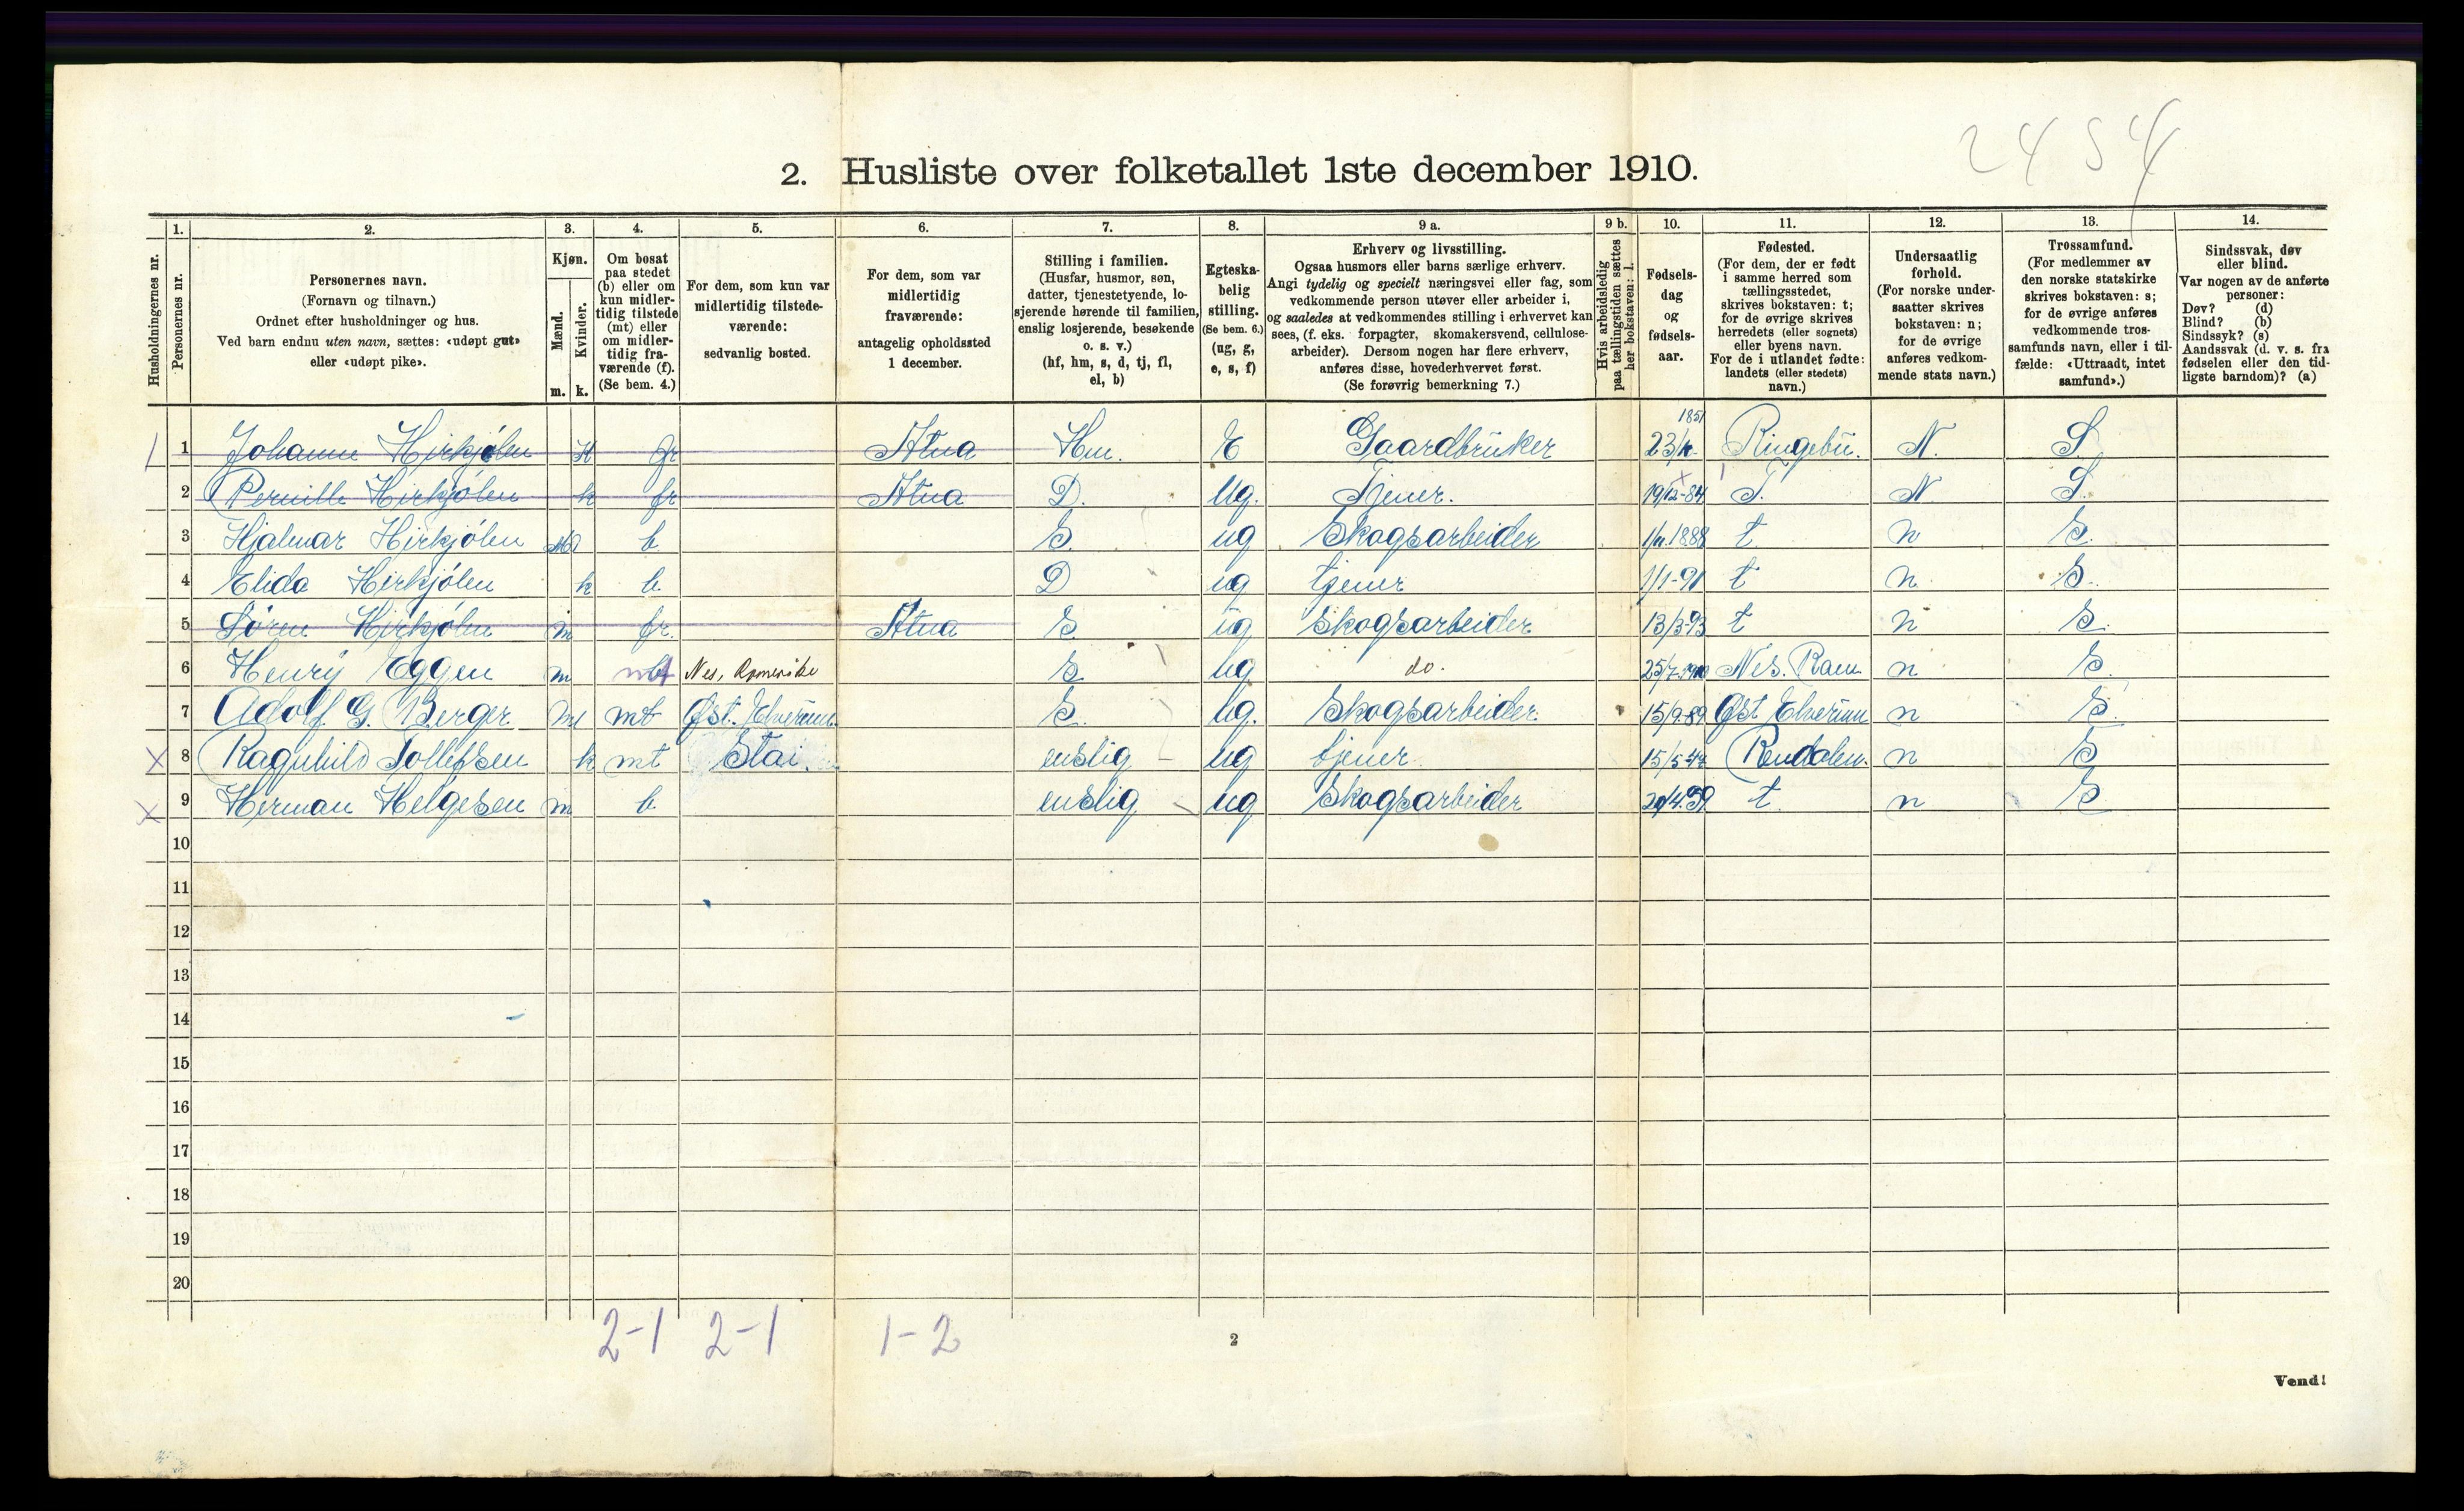 2454
2. Husliste over folketallet 1ste december 1910.
Husholdningernes nr.
1.
Personernes nr.
2.
Personernes navn.
(Fornavn og tilnavn.)
Ordnet efter husholdninger og hus.
Ved barn endnu uten navn, sættes: «udøpt gut»
eller «udøpt pike».
3.
Kjøn.
Mænd.
Kvinder.
m. k.
4.
Om bosat
paa stedet
(b) eller om
kun midler-
tidig tilstede
(mt) eller
om midler-
tidig fra-
værende (f).
(Se bem. 4.)
5.
For dem, som kun var
midlertidig tilstede-
værende:
sedvanlig bosted.
6.
For dem, som var
midlertidig
fraværende:
antagelig opholdssted
1 december.
7.
Stilling i familien.
(Husfar, husmor, søn,
datter, tjenestetyende, lo-
sjerende hørende til familien,
enslig losjerende, besøkende
o. s. v.)
(hf, hm, s, d, tj, fl,
el, b)
8.
Egteska-
belig
stilling.
(Se bem. 6.)
(ug, g,
e, s, f)
9 a.
Erhverv og livsstilling.
Ogsaa husmors eller barns særlige erhverv.
Angi tydelig og specielt næringsvei eller fag, som
vedkommende person utøver eller arbeider i,
og saaledes at vedkommendes stilling i erhvervet kan
sees, (f. eks. forpagter, skomakersvend, cellulose-
arbeider). Dersom nogen har flere erhverv,
anføres disse, hovederhvervet først.
(Se forøvrig bemerkning 7.)
9 b.
Hvis arbeidsledig
paa tællingstiden sættes
her bokstaven: l.
10.
Fødsels-
dag
og
fødsels-
aar.
11.
Fødested.
(For dem, der er født
i samme herred som
tællingsstedet,
skrives bokstaven: t;
for de øvrige skrives
herredets (eller sognets)
eller byens navn.
For de i utlandet fødte:
landets (eller stedets)
navn.)
12.
Undersaatlig
forhold.
(For norske under-
saatter skrives
bokstaven: n;
for de øvrige
anføres vedkom-
mende stats navn.)
13.
Trossamfund.
(For medlemmer av
den norske statskirke
skrives bokstaven: s;
for de øvrige anføres
vedkommende tros-
samfunds navn, eller i til-
fælde: «Uttraadt, intet
samfund».)
14.
Sindssvak, døv
eller blind.
Var nogen av de anførte
personer:
Døv? (d)
Blind? (b)
Sindssyk? (s)
Aandssvak (d. v. s. fra
fødselen eller den tid-
ligste barndom)? (a)
1 1 Johanne Hirkjølen K fr Atna Hm. E Gaardbruker 1851 Ringebu. N. S
2 Pernille Hirkjølen k fr Atna D. Ug. Tjener. 19/12-84 T. N S
3 Hjalmar Hirkjølen M b S. ug Skogsarbeider 1888 t n S.
4 Elida Hirkjølen k b. D ug tjener 1/1-91 t n. S.
5 Søren Hirkjølen m fr. Atna S ug Skogsarbeider 13/3-93 t n S.
6 Henry Eggen m mt Nes, Romerike S ug do. 25/7 Nes. Rom n S.
7 Adolf G. Berger M mt Øst. Elverum. S ug. Skogsarbeider. 15/9-89 Øst Elverum n S.
8 Ragnhild Tollefsen k mt Stai. enslig ug tjener 15/5 Rendalen. n S
9 Herman Helgesen m b. enslig ug Skogsarbeider 59 t. n S
10
11
12
13
14
15
16
17
18
19
20
2-1 2-1 1-2
2
Vend!